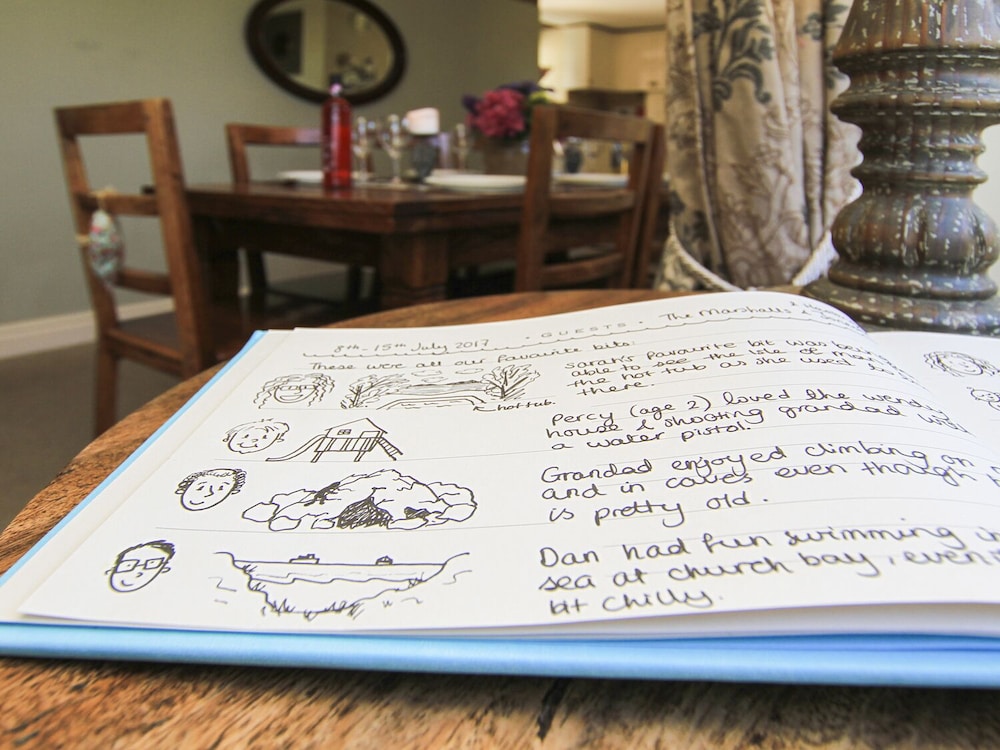 · GUESTS · The Marshalls &
8th - 15th July 2017
These were all our favourite bits:
Sarah's favourite bit was being
able to see the isle of man
the hot tub as she used
there.
hot tub.
Percy (age 2) loved the wendy
house & shooting grandad with
a water pistol.
Grandad enjoyed climbing on
and in caves even though
is pretty old.
Dan had fun swimming in
sea at church bay, even
bit chilly.